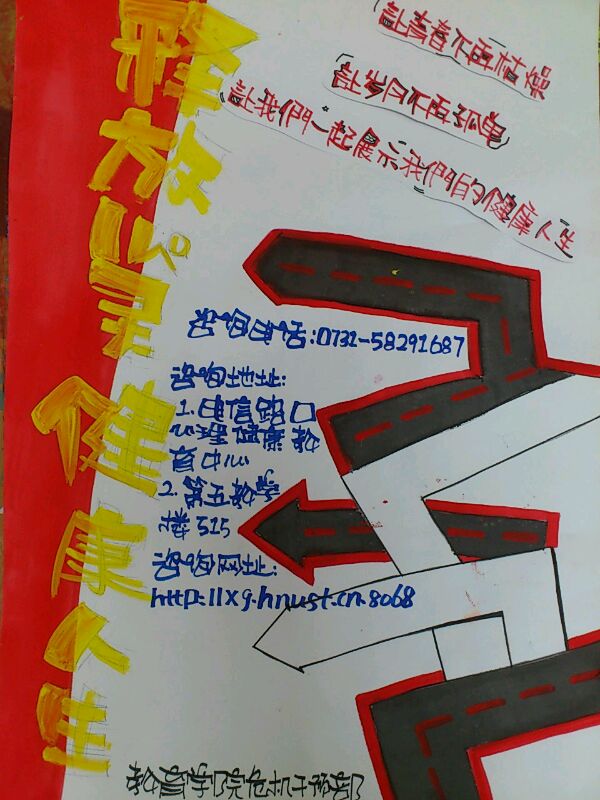 释放心灵
健康人生
让青春不再枯燥
让岁月不再孤单
让我們一起展示我們的健康人生
咨询电话:0731-58291687
咨询地址:
1.电信路口
心理健康教
育中心
2.第五教学
楼515
咨询网址:
http://xg.hnust.cn:8068
教育学院危机干预部